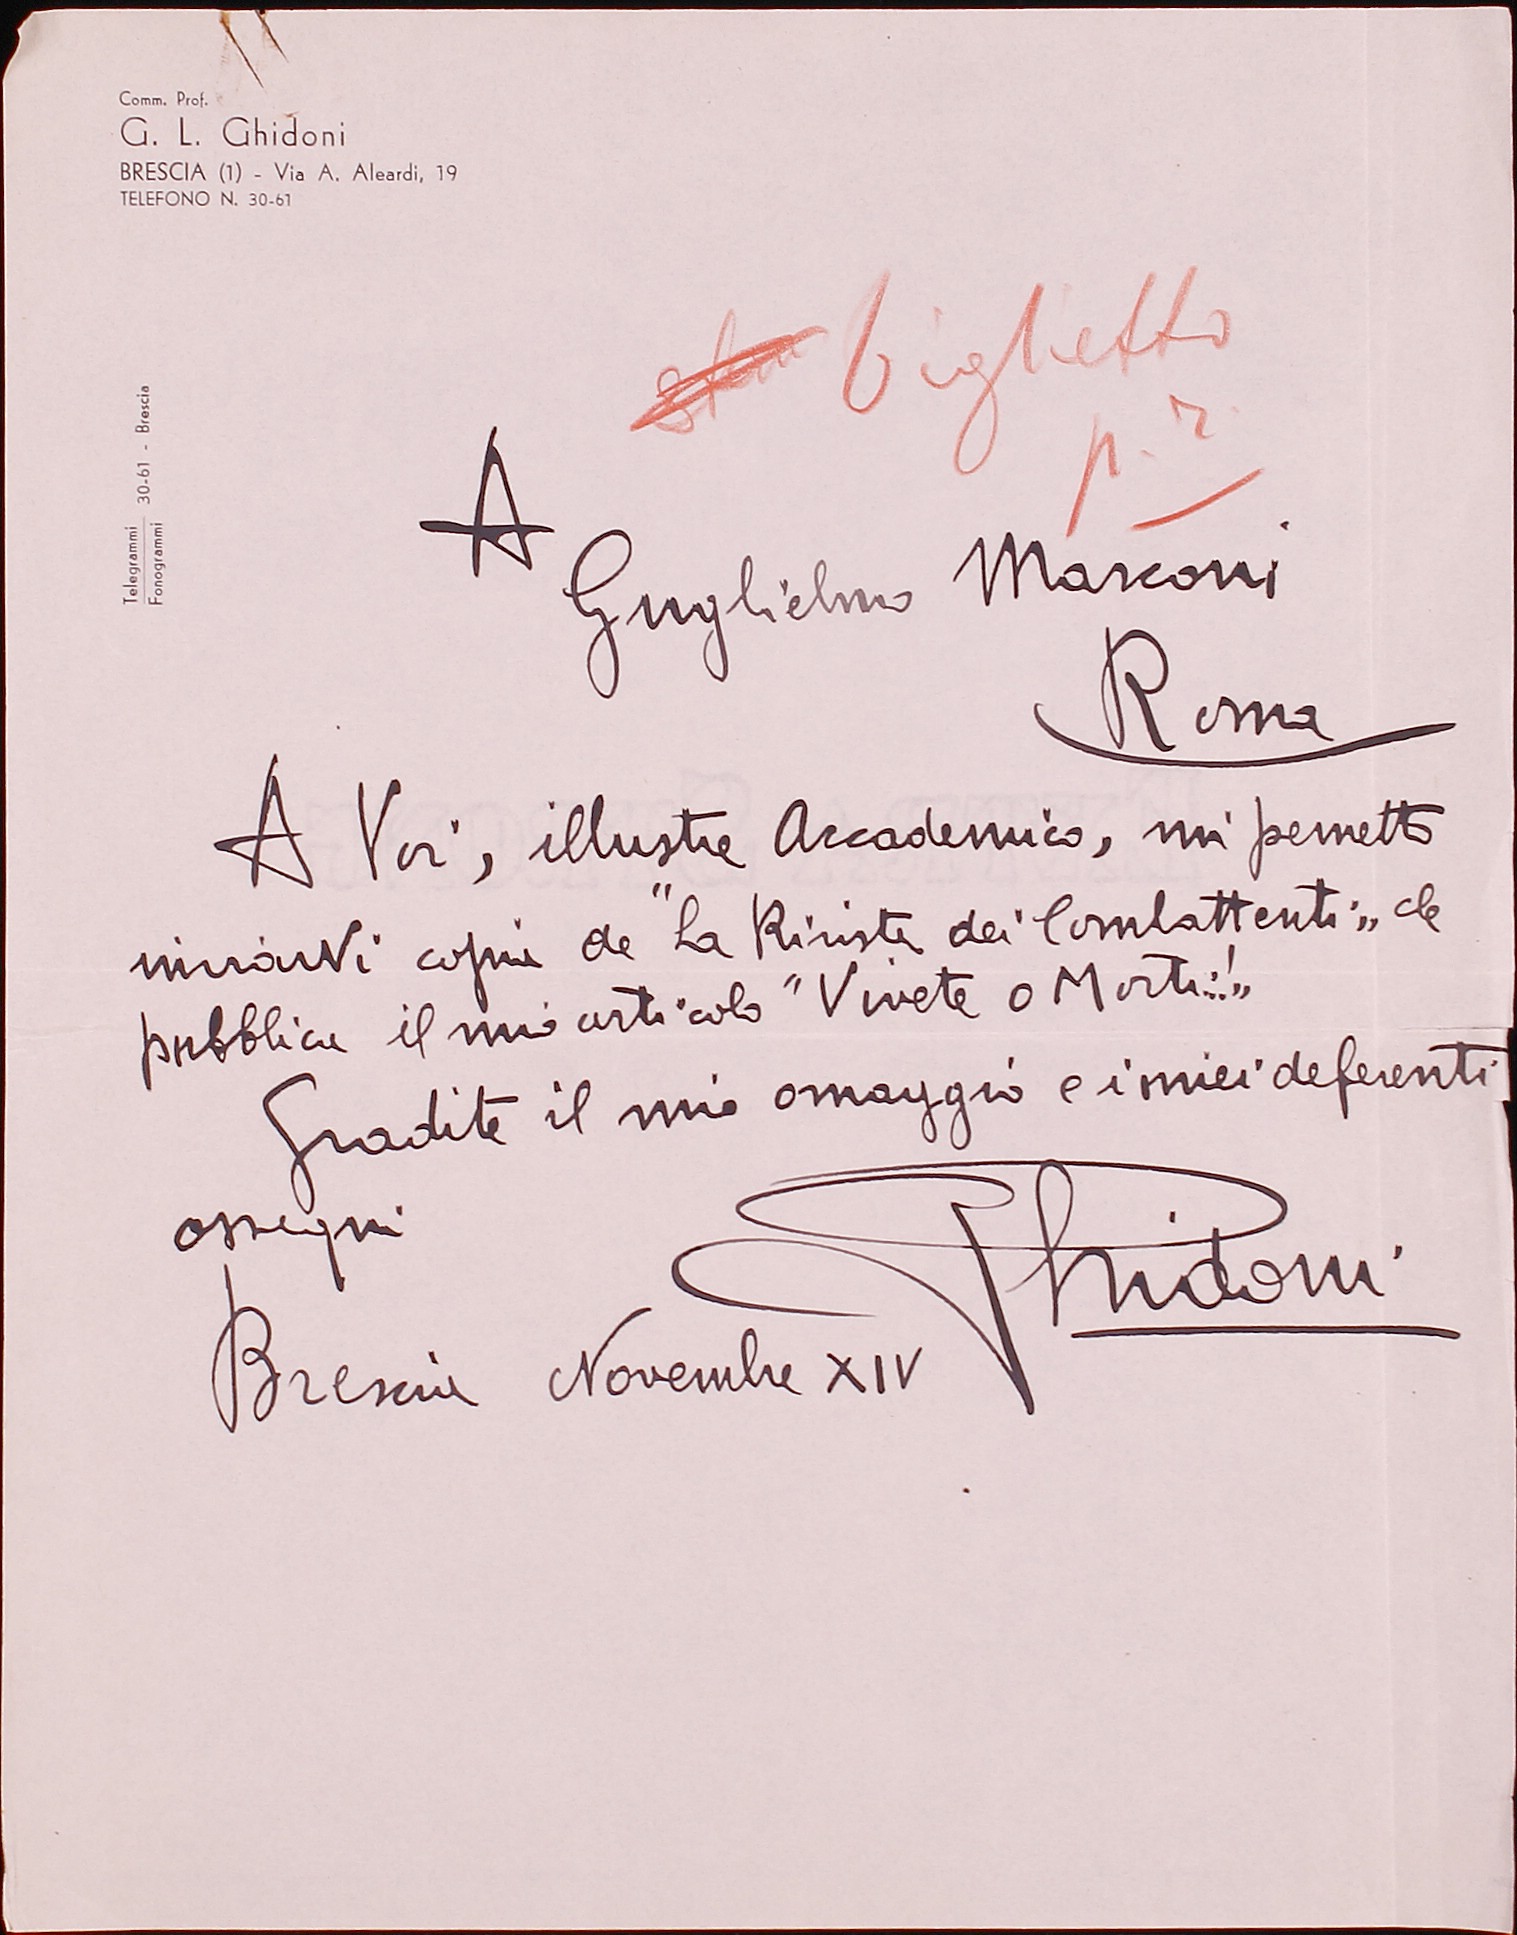 Comm. Prof.
G. L. Ghidoni
BRESCIA (1) - Via A. Aleardi, 19
TELEFONO N. 30-61
Telegrammi
Fonogrammi
30-61 - Brescia
biglietto
p. r.
A
Guglielmo Marconi
Roma
A Voi, illustre Accademico, mi permetto
inviarVi copia de "La Rivista dei Combattenti" che
pubblica il mio articolo "Vivete o Morti...!"
Gradite il mio omaggio e i miei deferenti
ossequi
Ghidoni
Brescia Novembre XIV